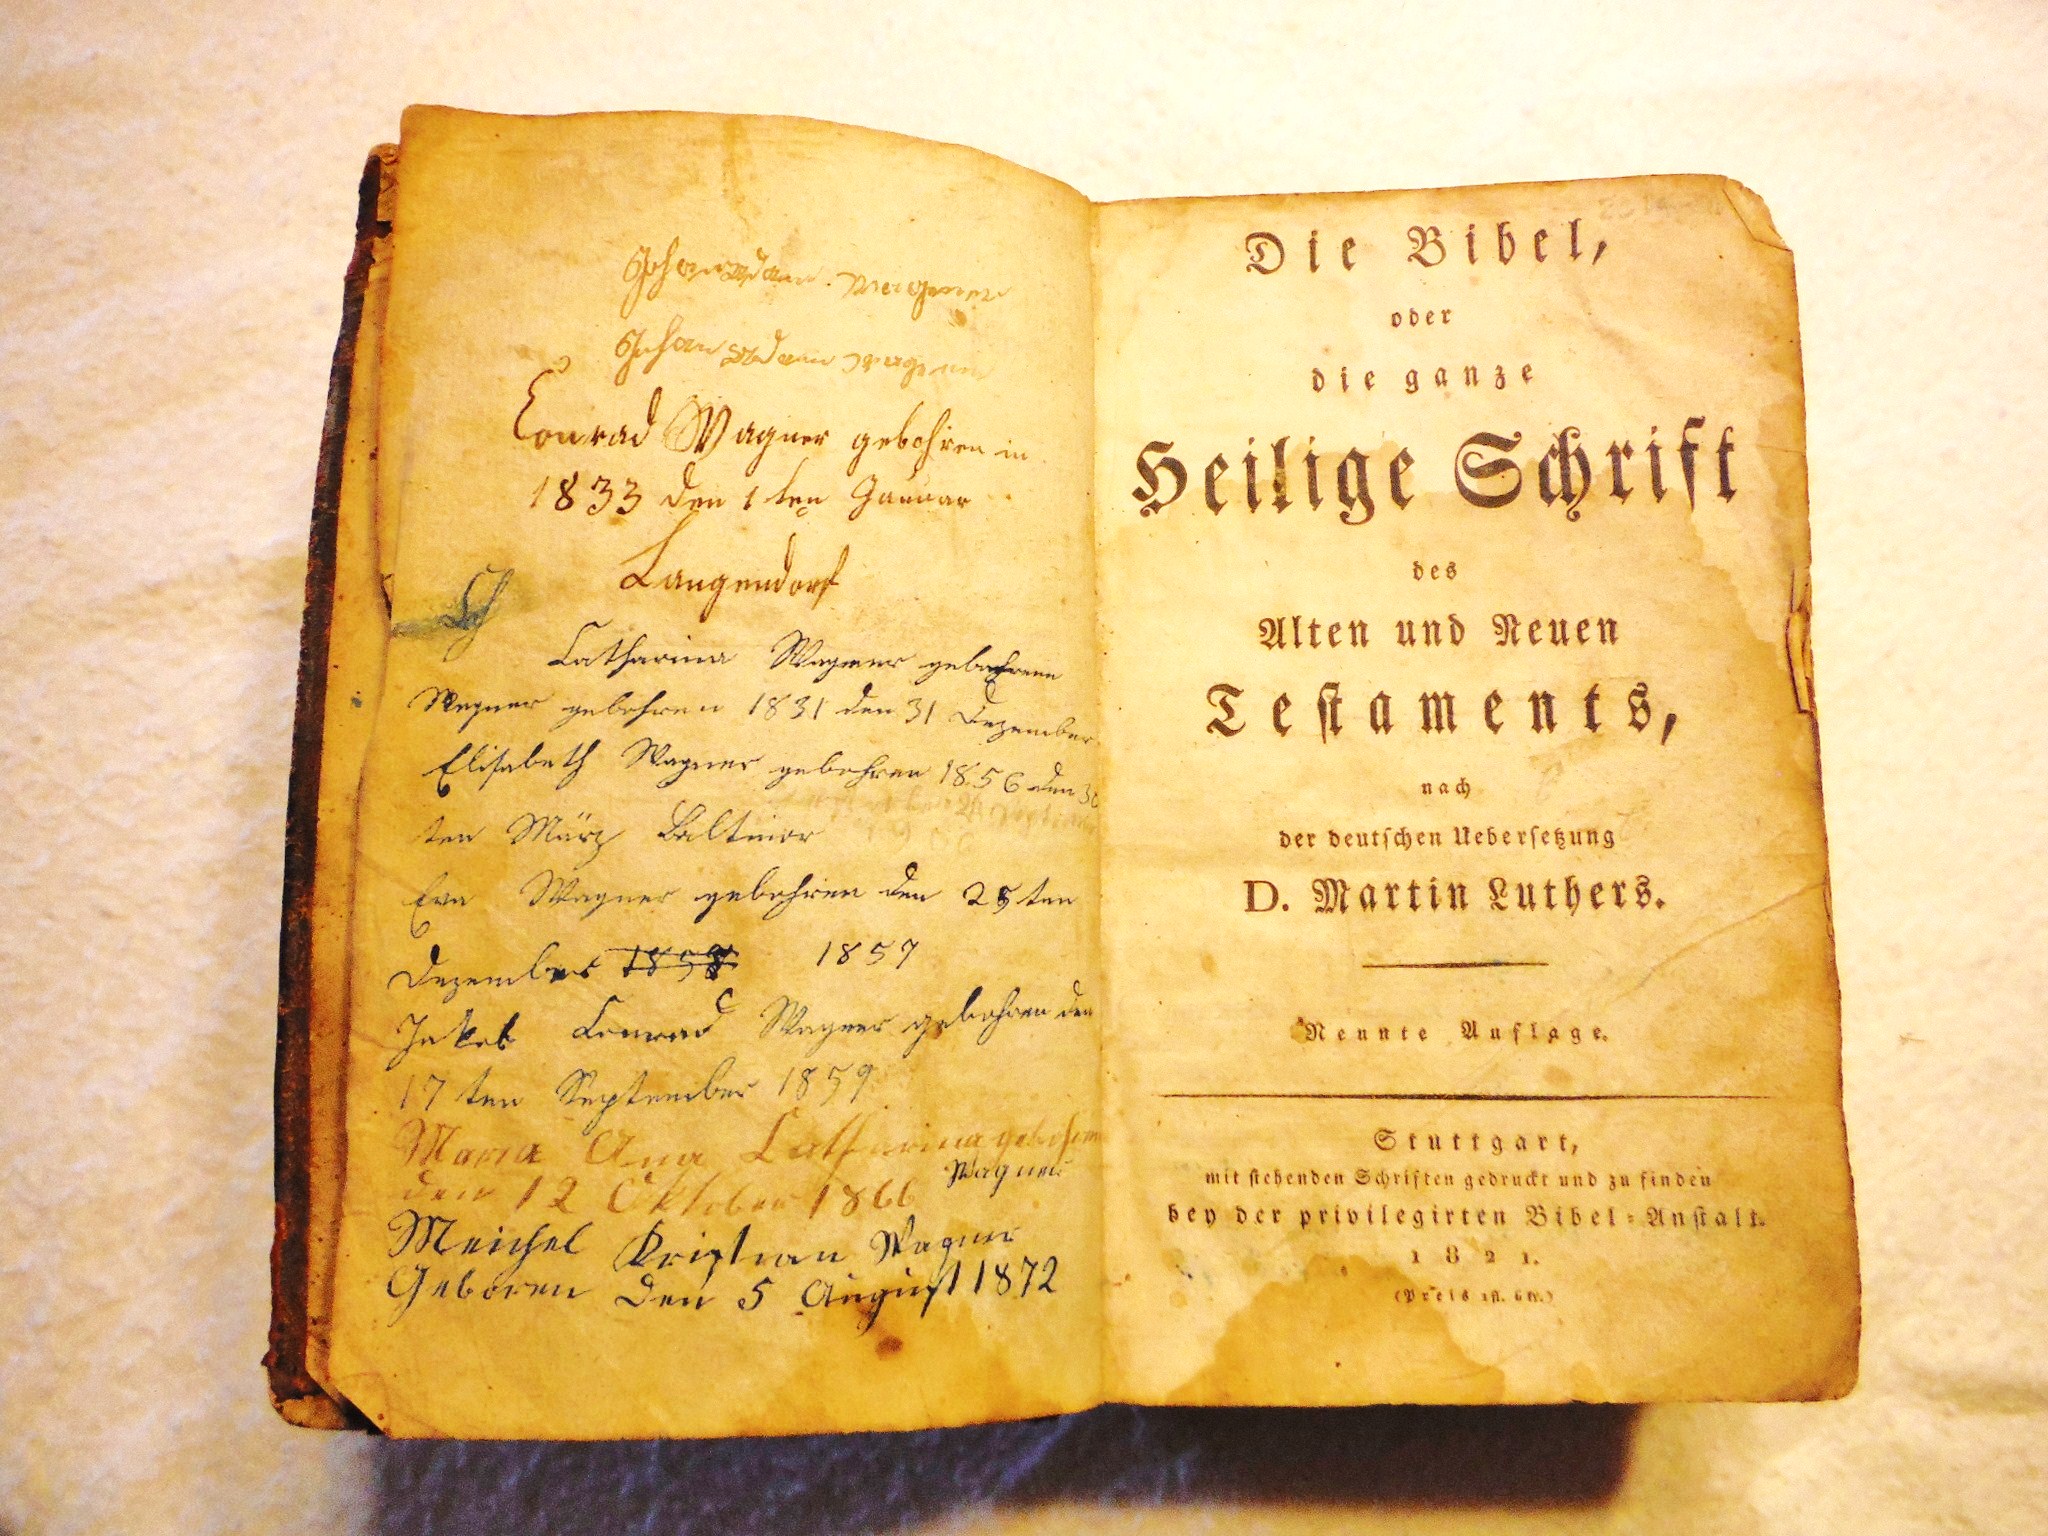 Johan Adam Wagener
Johan Adam Wagener
Conrad Wagner gebohren in
1833 den 1 ten Januar
Langendorf
Catharina Wagner gebohrene
Wagner gebohren 1831 den 31 Dezember
Elisabeth Wagner gebohren 1856 den 30
ten März Baltimor
Eva Wagner gebohren den 25 ten
Dezember 1858 1857
Jakob Conrad Wagner gebohren den
17 ten September 1859
Maria Ana Catharina gebohren
Wagner
den 12 Oktober 1866
Meichel Kristian Wagner
Geboren den 5 August 1872
Die Bibel,
oder
die ganze
Heilige Schrift
des
Alten und Neuen
Testaments,
nach
der deutschen Uebersetzung
D. Martin Luthers.
Neunte Auflage.
Stuttgart,
mit stehenden Schriften gedruckt und zu finden
bey der privilegirten Bibel-Anstalt.
1821.
(Preis 1fl. 6kr.)